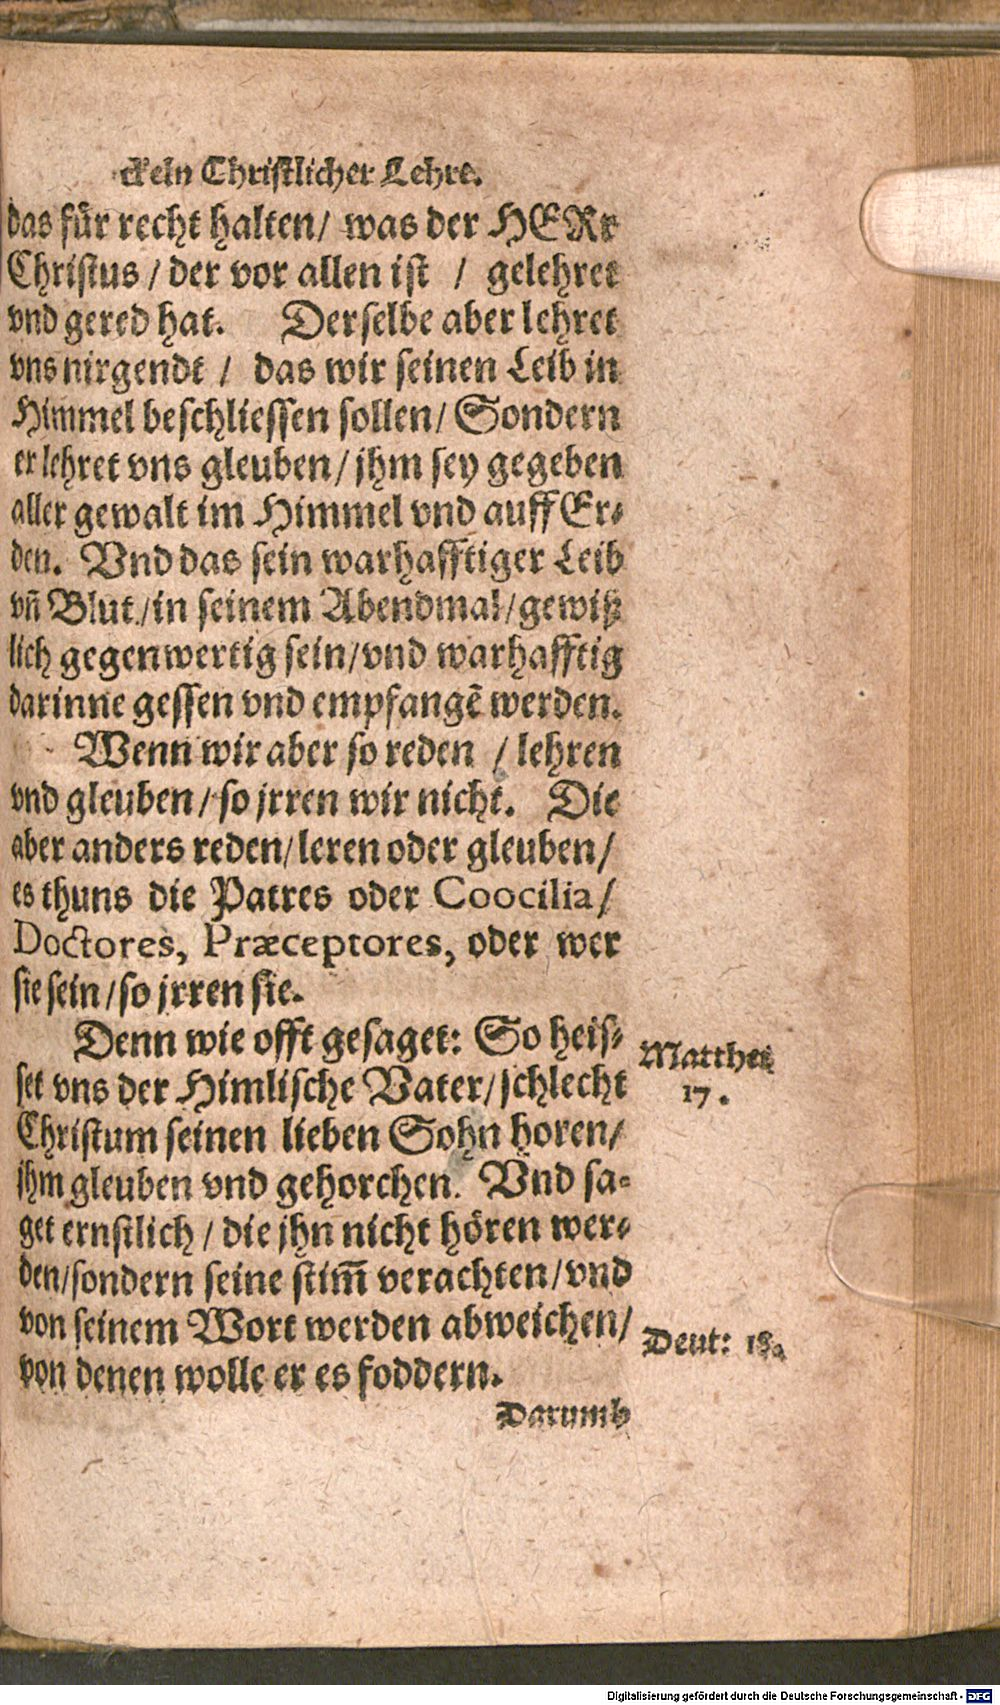 ckeln Christlicher Lehre.
das für recht halten/ was der HERr
Christus / der vor allen ist / gelehret
vnd gered hat. Derselbe aber lehret
vns nirgendt / das wir seinen Leib in
Himmel beschliessen sollen/ Sondern
er lehret vns gleuben/ jhm sey gegeben
aller gewalt im Himmel vnd auff Er-
den. Vnd das sein warhafftiger Leib
vñ Blut/in seinem Abendmal/gewiß
lich gegenwertig sein/vnd warhafftig
darinne gessen vnd empfangē werden.
Wenn wir aber so reden / lehren
vnd gleuben/ so jrren wir nicht. Die
aber anders reden/leren oder gleuben/
es thuns die Patres oder Coocilia/
Doctores, Præceptores, oder wer
sie sein/so jrren sie.
Denn wie offt gesaget: So heis-
set vns der Himlische Vater/schlecht
Christum seinen lieben Sohn horen/
jhm gleuben vnd gehorchen. Vnd sa-
get ernstlich / die jhn nicht hören wer-
den/sondern seine stim̄ verachten/vnd
von seinem Wort werden abweichen/
von denen wolle er es foddern.
Darumb
Matthei
17.
Deut: 18.
Digitalisierung gefördert durch die Deutsche Forschungsgemeinschaft - DFG